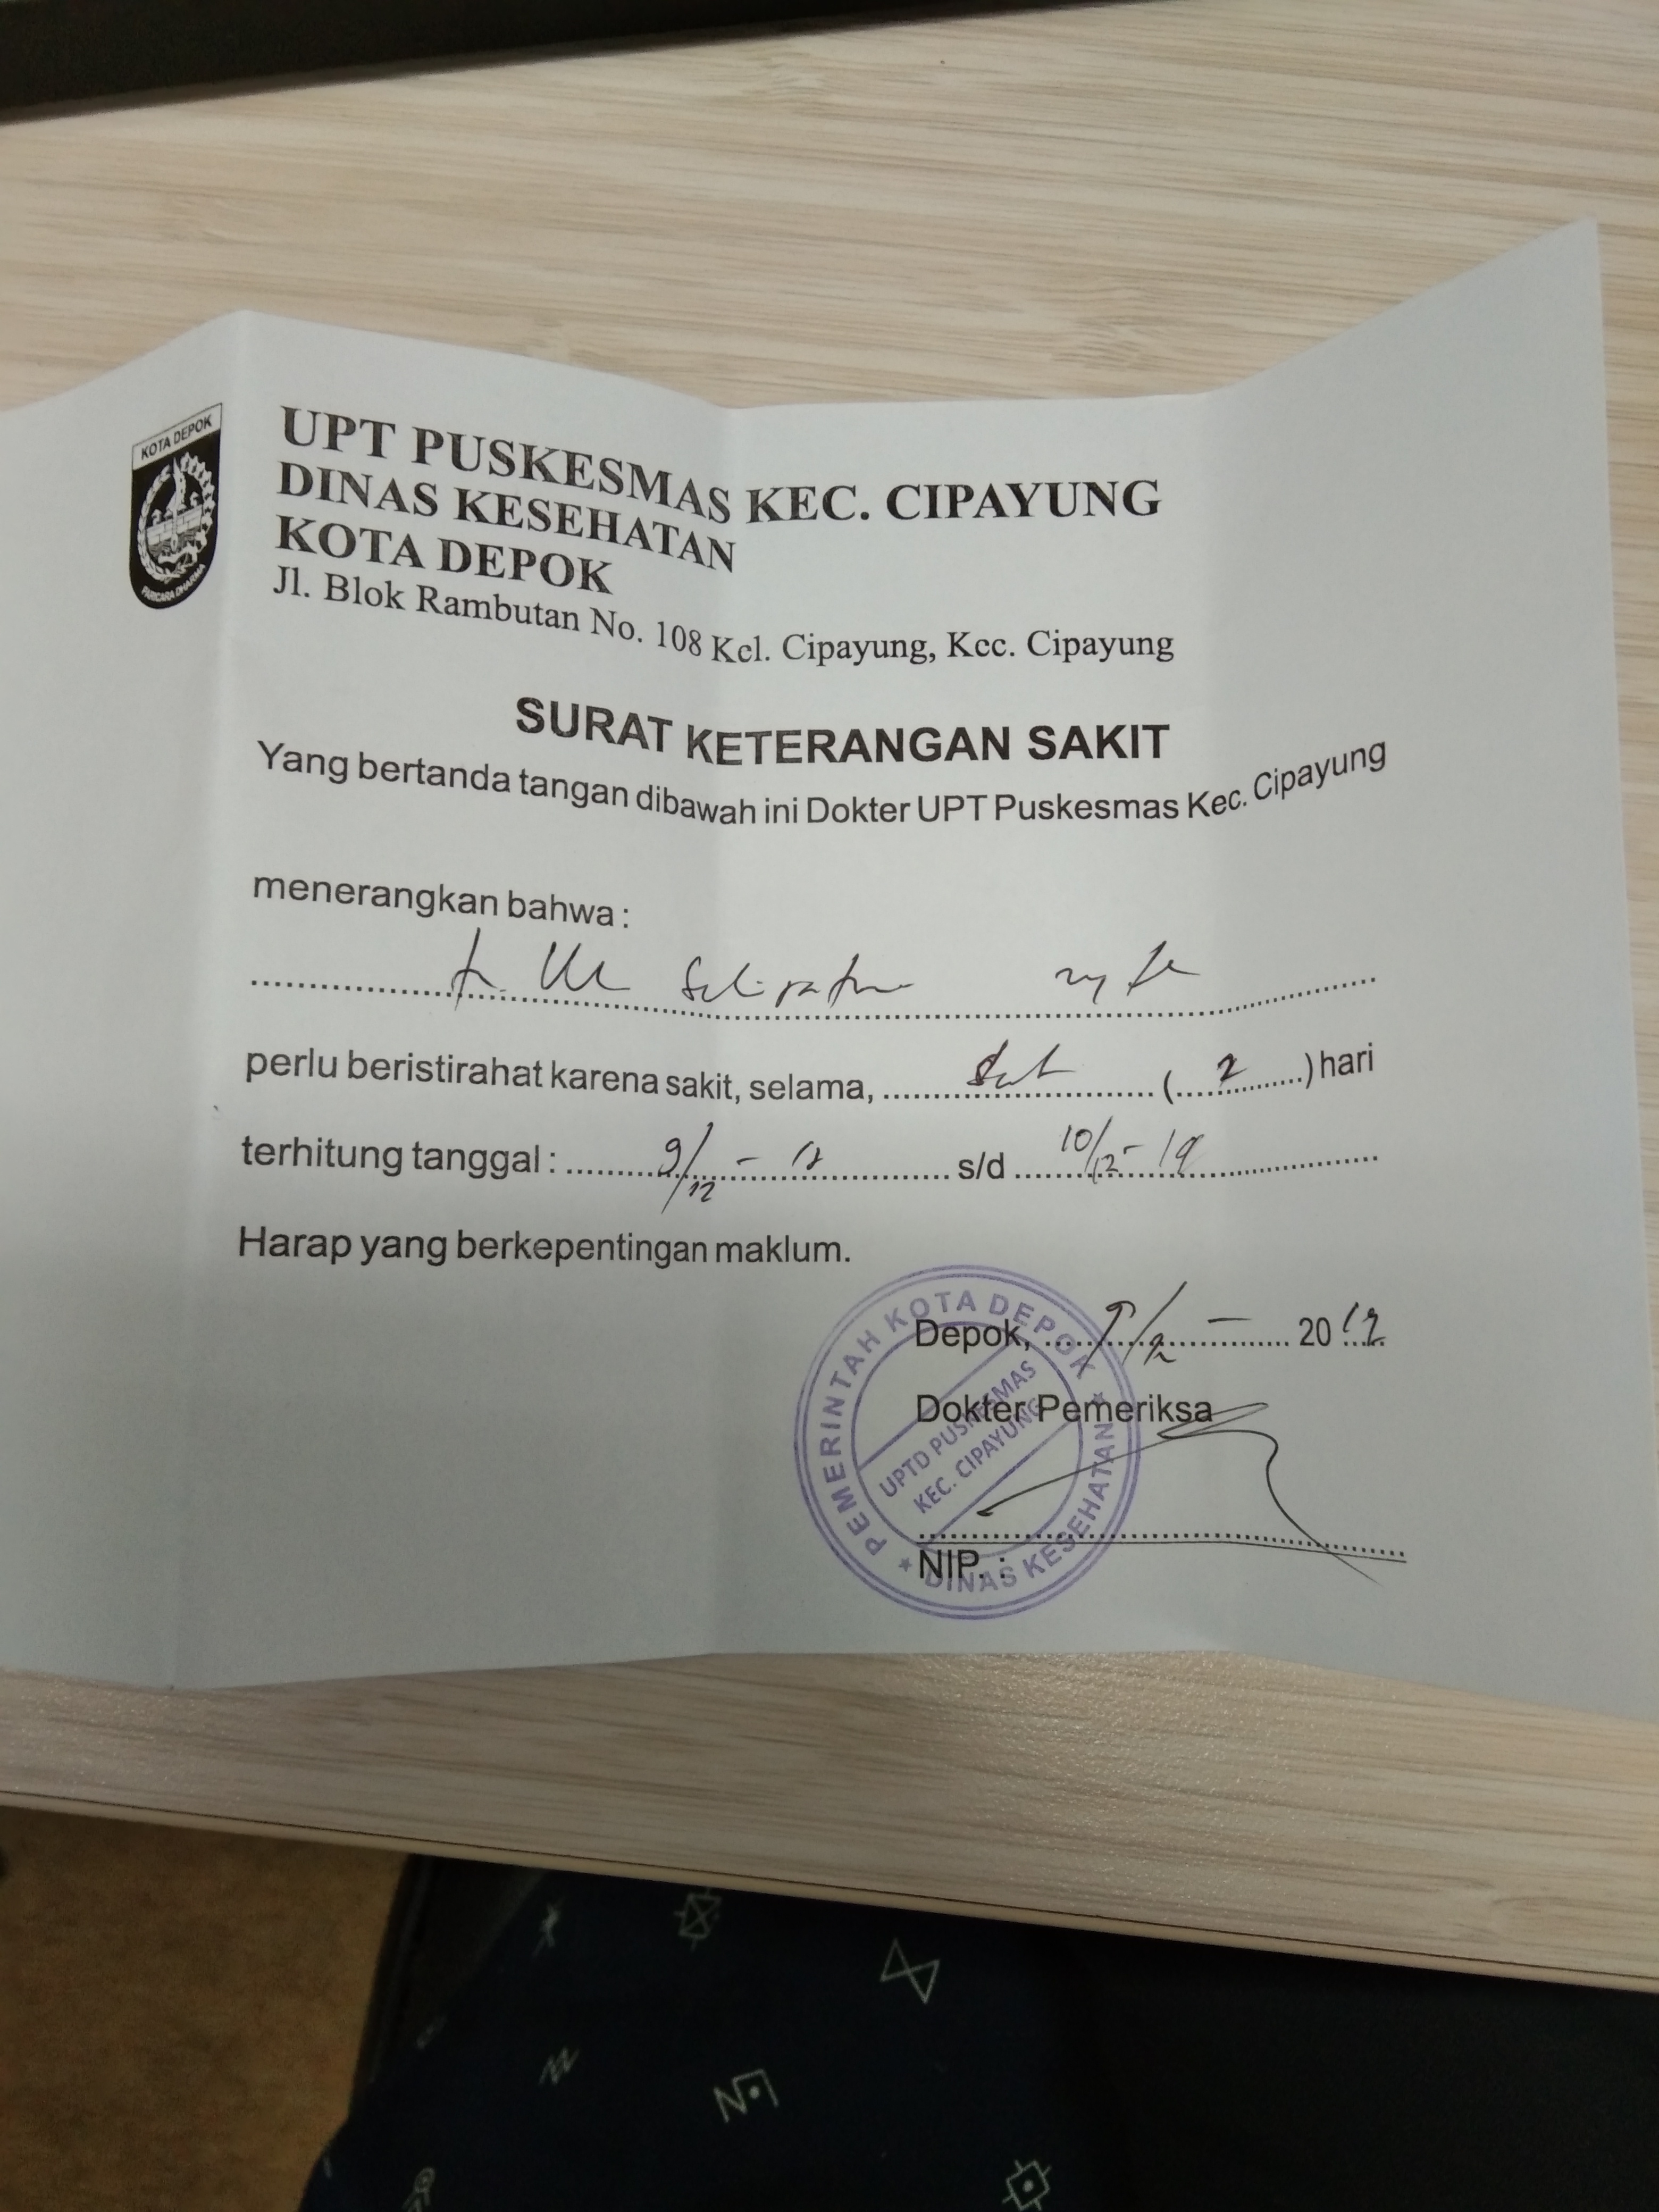 KOTA DEPOK
PARICARA DHARMA
UPT PUSKESMAS KEC. CIPAYUNG
DINAS KESEHATAN
KOTA DEPOK
Jl. Blok Rambutan No. 108 Kel. Cipayung, Kec. Cipayung
SURAT KETERANGAN SAKIT
Yang bertanda tangan dibawah ini Dokter UPT Puskesmas Kec. Cipayung
menerangkan bahwa :
perlu beristirahat karena sakit, selama, .......... (..2..) hari
terhitung tanggal : 9/12 - s/d 10/12 - 19
Harap yang berkepentingan maklum.
Depok, .......... 20
Dokter Pemeriksa
NIP. :
PEMERINTAH KOTA DEPOK
UPTD PUSKESMAS
KEC. CIPAYUNG
DINAS KESEHATAN